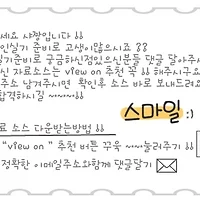 세요 샤짱입니다 !!
인실기 준비로 고생이많으시죠 ??
실기준비로 궁금하신점있으신분들 댓글 달아주시
신 자료소스는 view on 추천 꾹 !! 해주시구요
주소 남겨주시면 확인후 소스 바로 보내드려요
합격하시길 ~~~!!
스마일 :)
료 소스 다운받는방법 !!
" view on " 추천 버튼 꾸욱 ~~~눌러주기 !!
정확한 이메일주소와함께 댓글달기